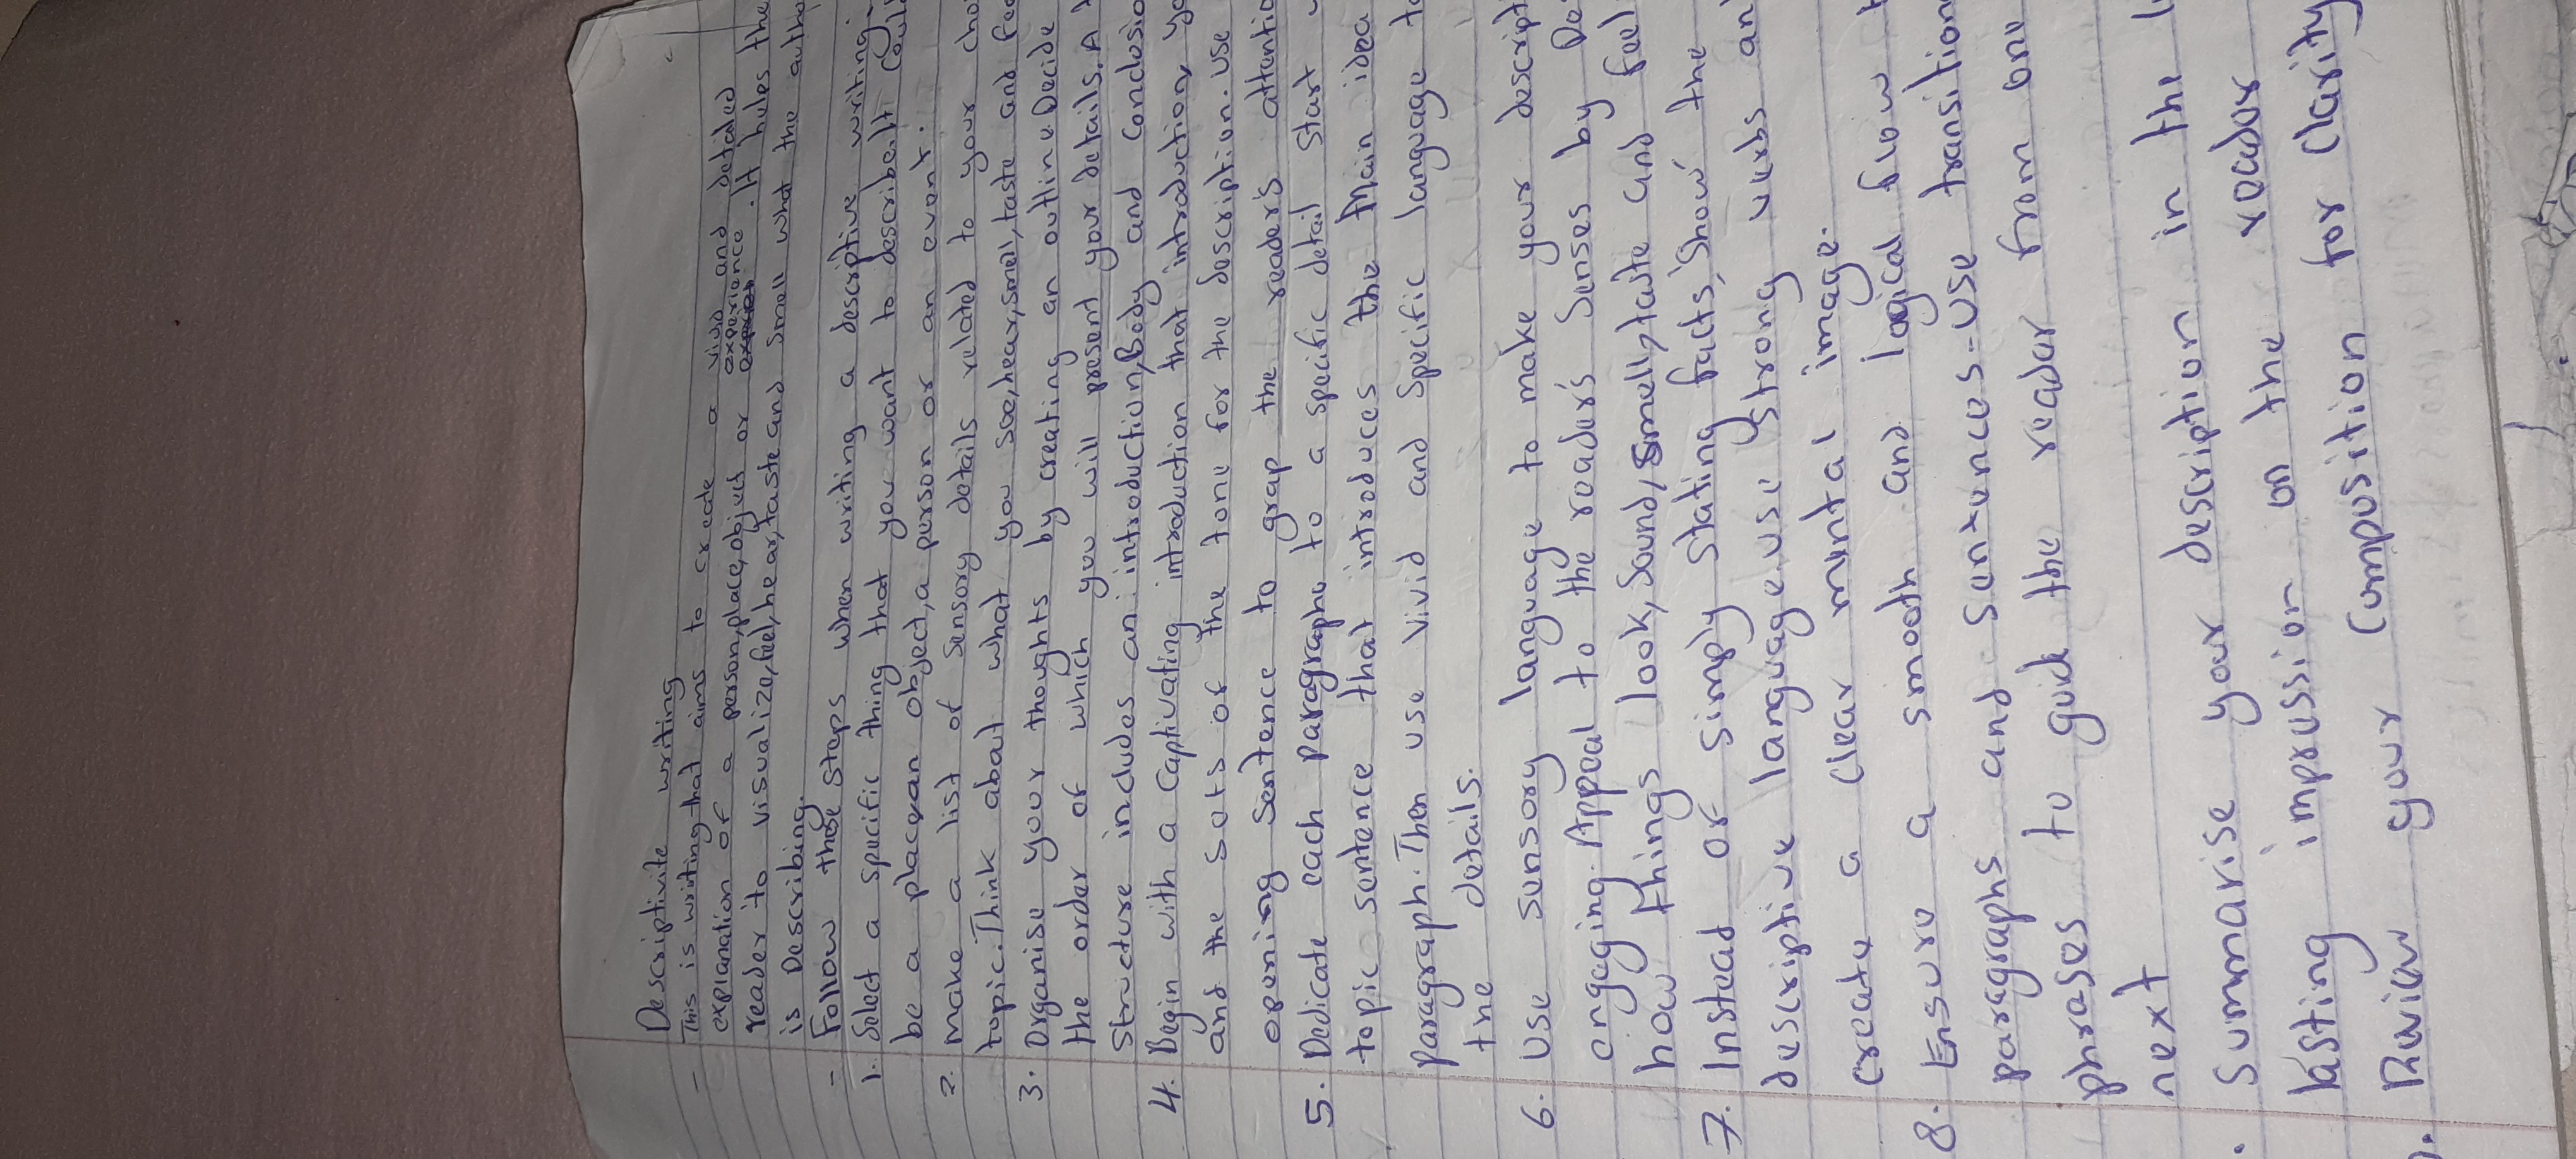 Descriptivite writing
- This is writing that aims to create a vivid and detailed
explanation of a person, place, object or experience. It hules the
reader to visualize, feel, hear, taste and smell what the autho
is Describing.
- Follow these steps when writing a descriptive writing:-
1. Select a specific thing that you want to describe. It could
be a place, an object, a person or an event.
2. make a list of sensory details related to your cho
topic. Think about what you see, hear, smell, taste and fee
3. Organise your thoughts by creating an outline. Decide
the order of which you will present your details. A
Structure includes an introduction, Body and conclusio
4. Begin with a captivating introduction that introduction yo
and the sets of the tone for the description. Use
opening sentence to grap the reader's attentio
5. Dedicate each paragraphe to a specific detail start
topic sentence that introduces the Main idea
paragraph. Then use vivid and specific language to
the details.
6. Use sensory language to make your descript
engaging. Appeal to the reader's senses by De
how things look, sound, smell, taste and feel
7. Instead of simply stating facts, 'Show' the
descriptive language. use strong verbs an
create a clear mental image.
8. Ensure a smooth and logical flow
paragraphs and sentences - use transition
phrases to guide the reader from one
next
. Summarise your description in the l
lasting impression on the reader
. Review your composition for clarity